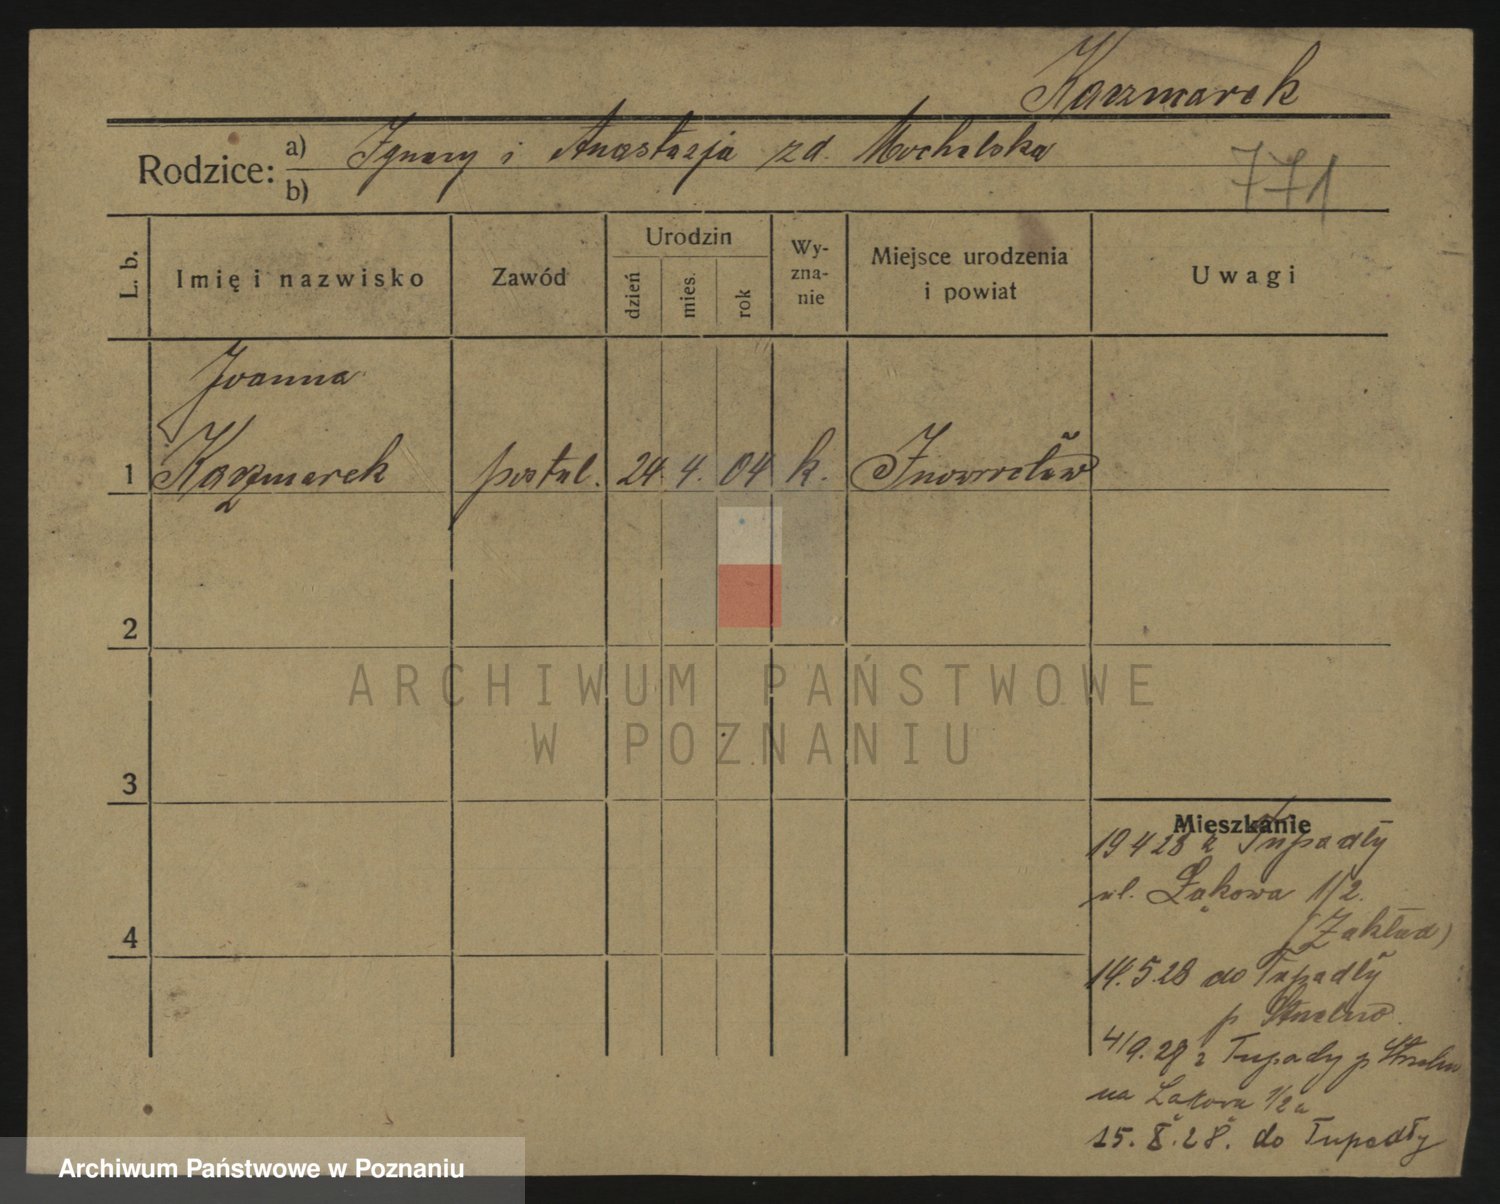 Kaczmarek
Rodzice: a) Ignacy i Anastazja zd. Mochelska
b)
771
L. b.
Imię i nazwisko
Zawód
Urodzin
dzień
mies.
rok
Wy-
zna-
nie
Miejsce urodzenia
i powiat
Uwagi
Joanna
1 Kaczmarek postul. 24. 4. 04 k. Inowrocław
2
3
4
Mieszkanie
19 4 28 z Tupadły
ul. Łąkowa 1/2.
(Zakład)
14.5.28 do Tupadły
p Strzelno
4/9.28 z Tupady p Strzelno
na Łąkowa 1/2a
15. X. 28. do Tupadły
ARCHIWUM PAŃSTWOWE
W POZNANIU
Archiwum Państwowe w Poznaniu